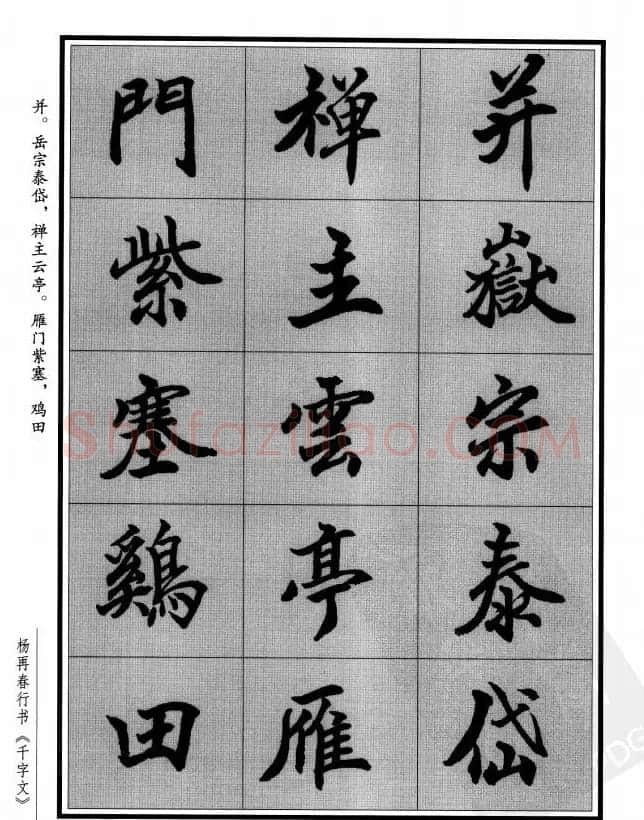 并嶽宗泰岱
禅主雲亭雁
門紫塞鷄田
并。岳宗泰岱，禅主云亭。雁门紫塞，鸡田
杨再春行书《千字文》
Shufaziliao.COM